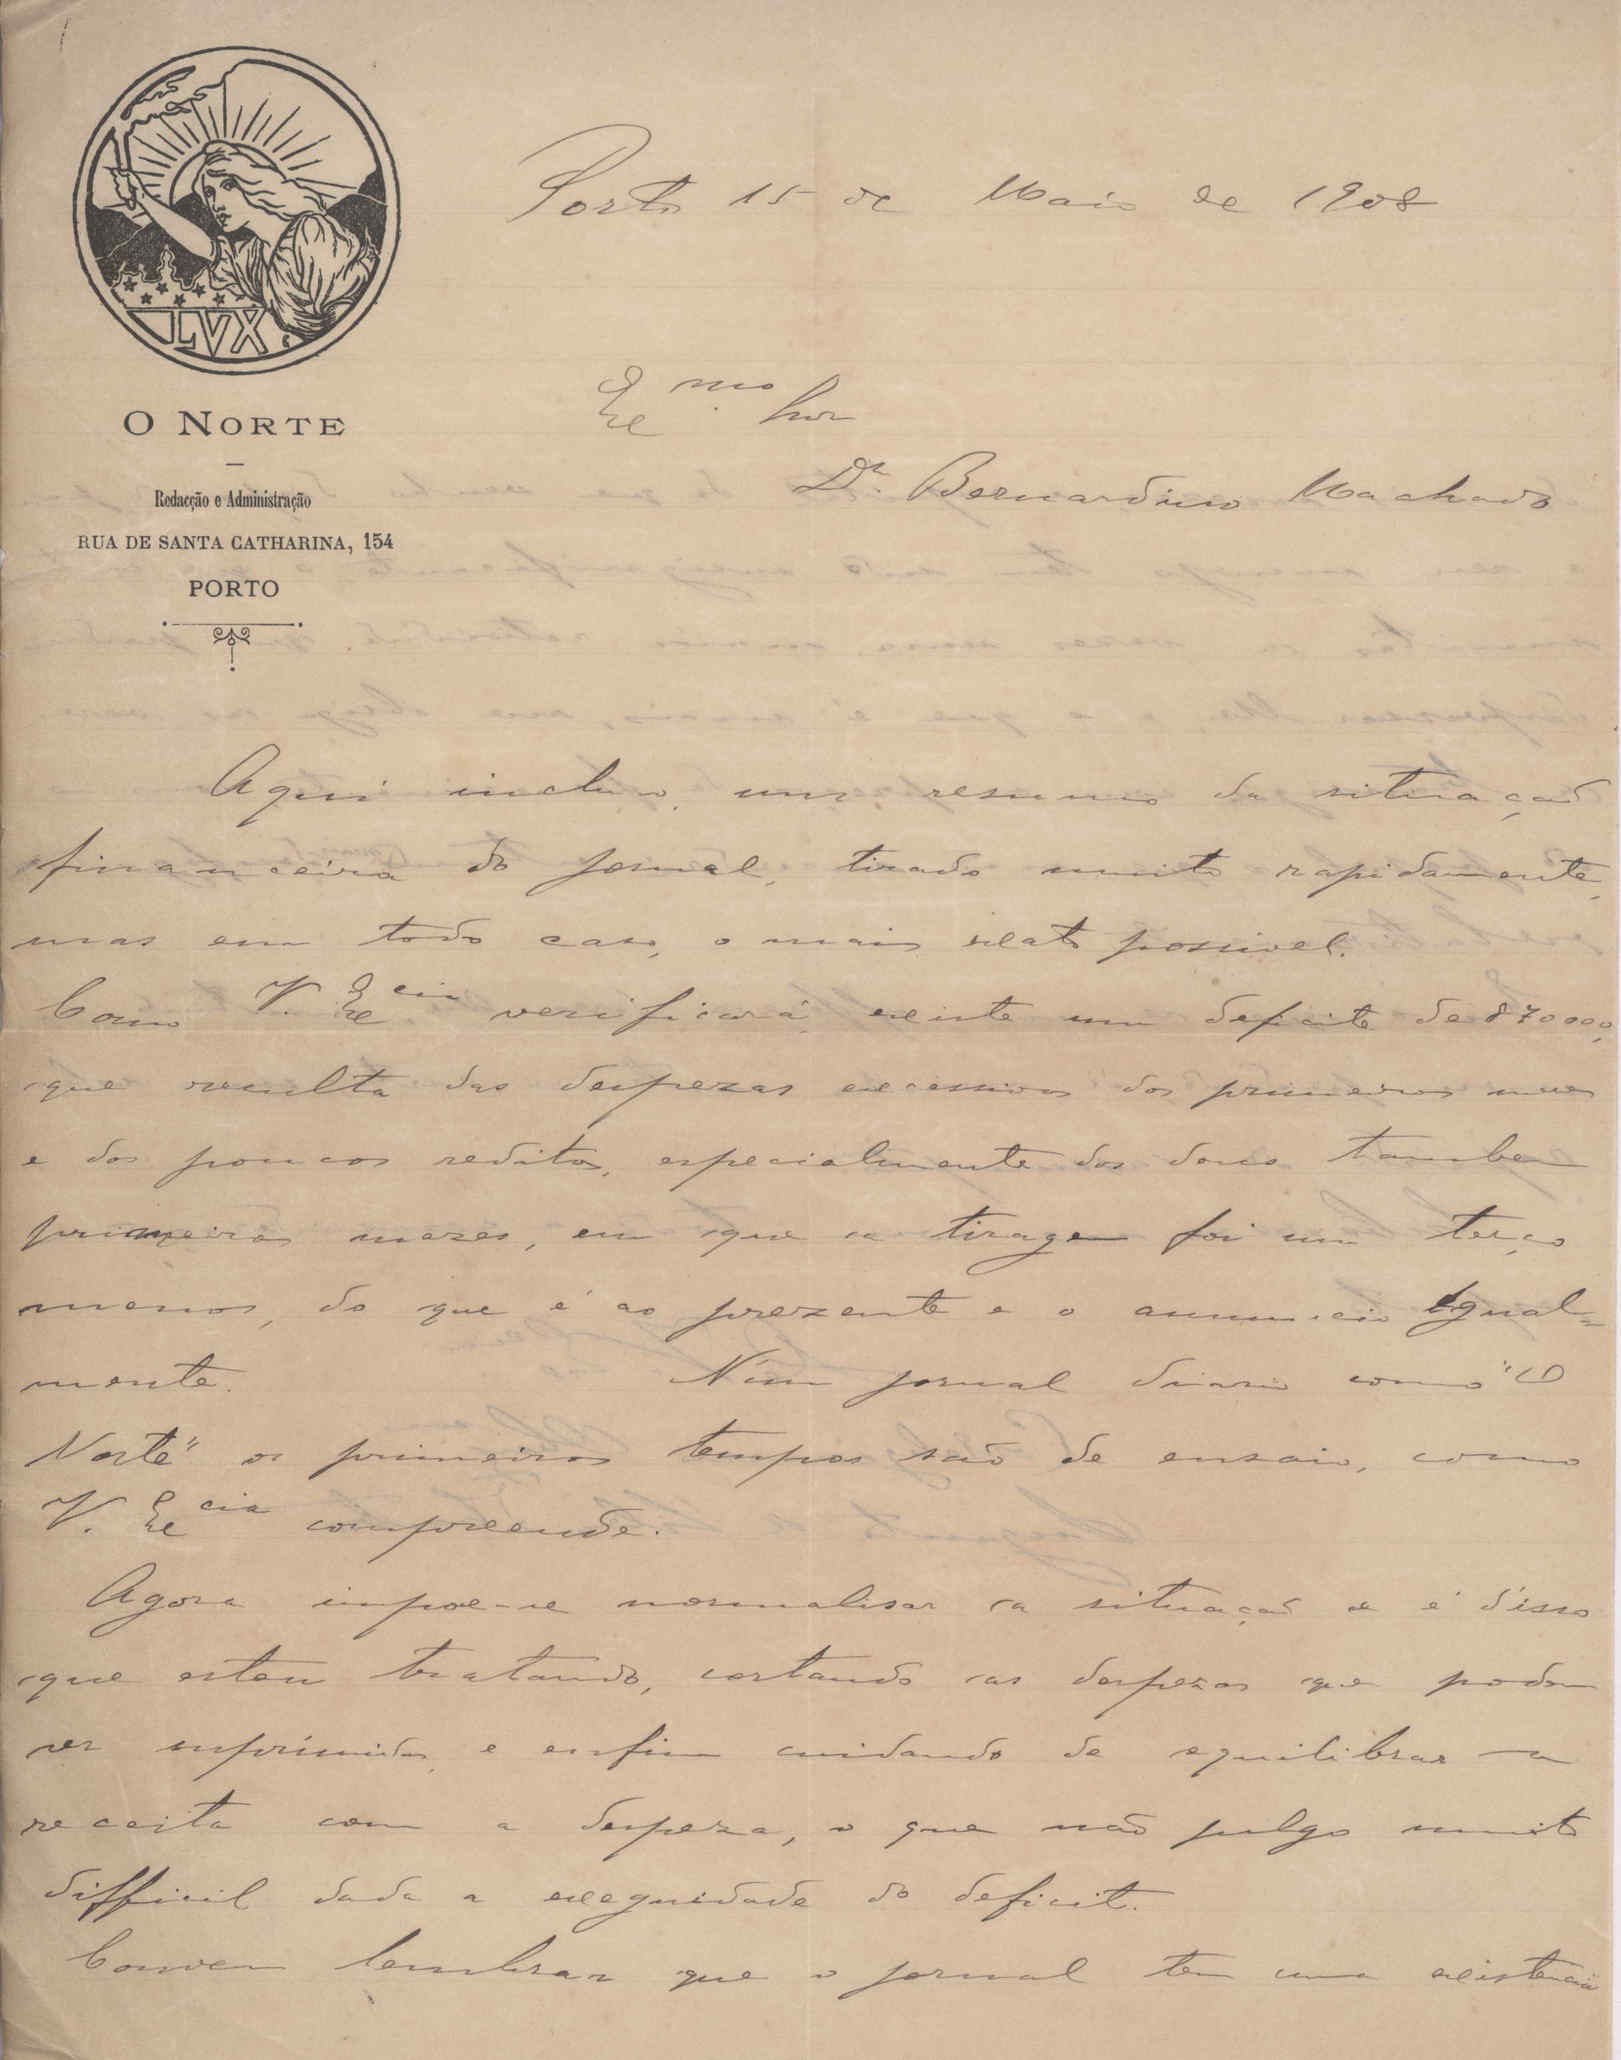 LVX
O NORTE
Redacção e Administração
RUA DE SANTA CATHARINA, 154
PORTO
Porto 15 de Maio de 1908
Exmo Snr
Dr. Bernardino Machado
Aqui incluo um resumo da situação
financeira do jornal, tirado muito rapidamente,
mas em todo caso, o mais exato possivel.
Como V. Excia verificará, existe um deficite de 870000,
que resulta das despezas excessivas dos primeiros meses
e dos poucos reditos, especialmente dos dous tambem
primeiros mezes, em que a tiragem foi um terço
menos, do que é ao prezente e o annuncio egual-
mente. Num jornal diario como "O
Norte" os primeiros tempos são de ensaio, como
V. Excia compreende.
Agora impoe-se normalisar a situação e é d'isso
que estou tratando, cortando as despezas que podem
ser suprimidas e enfim cuidando de equilibrar a
receita com a despeza, o que não julgo muito
difficil dada a exeguidade do deficit.
Convem lembrar que o jornal tem uma existencia